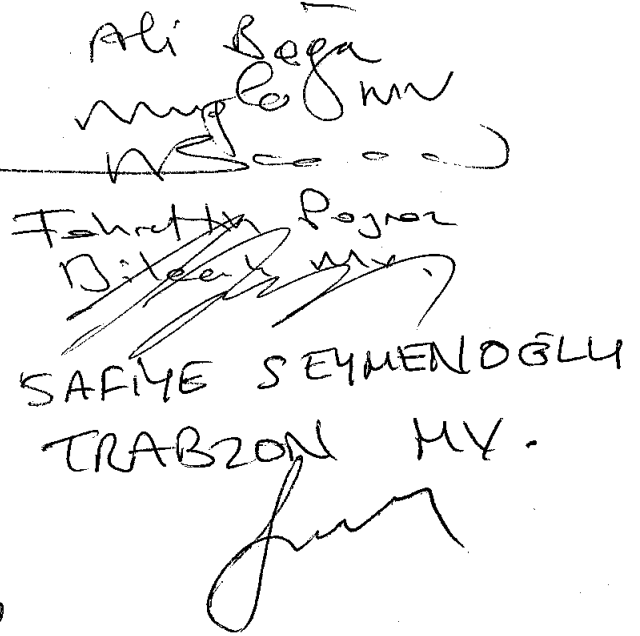 Ali Boğa
Muğla mv
Fahrettin Poyraz
Bilecik mv.
SAFİYE SEYMENOĞLU
TRABZON MV.